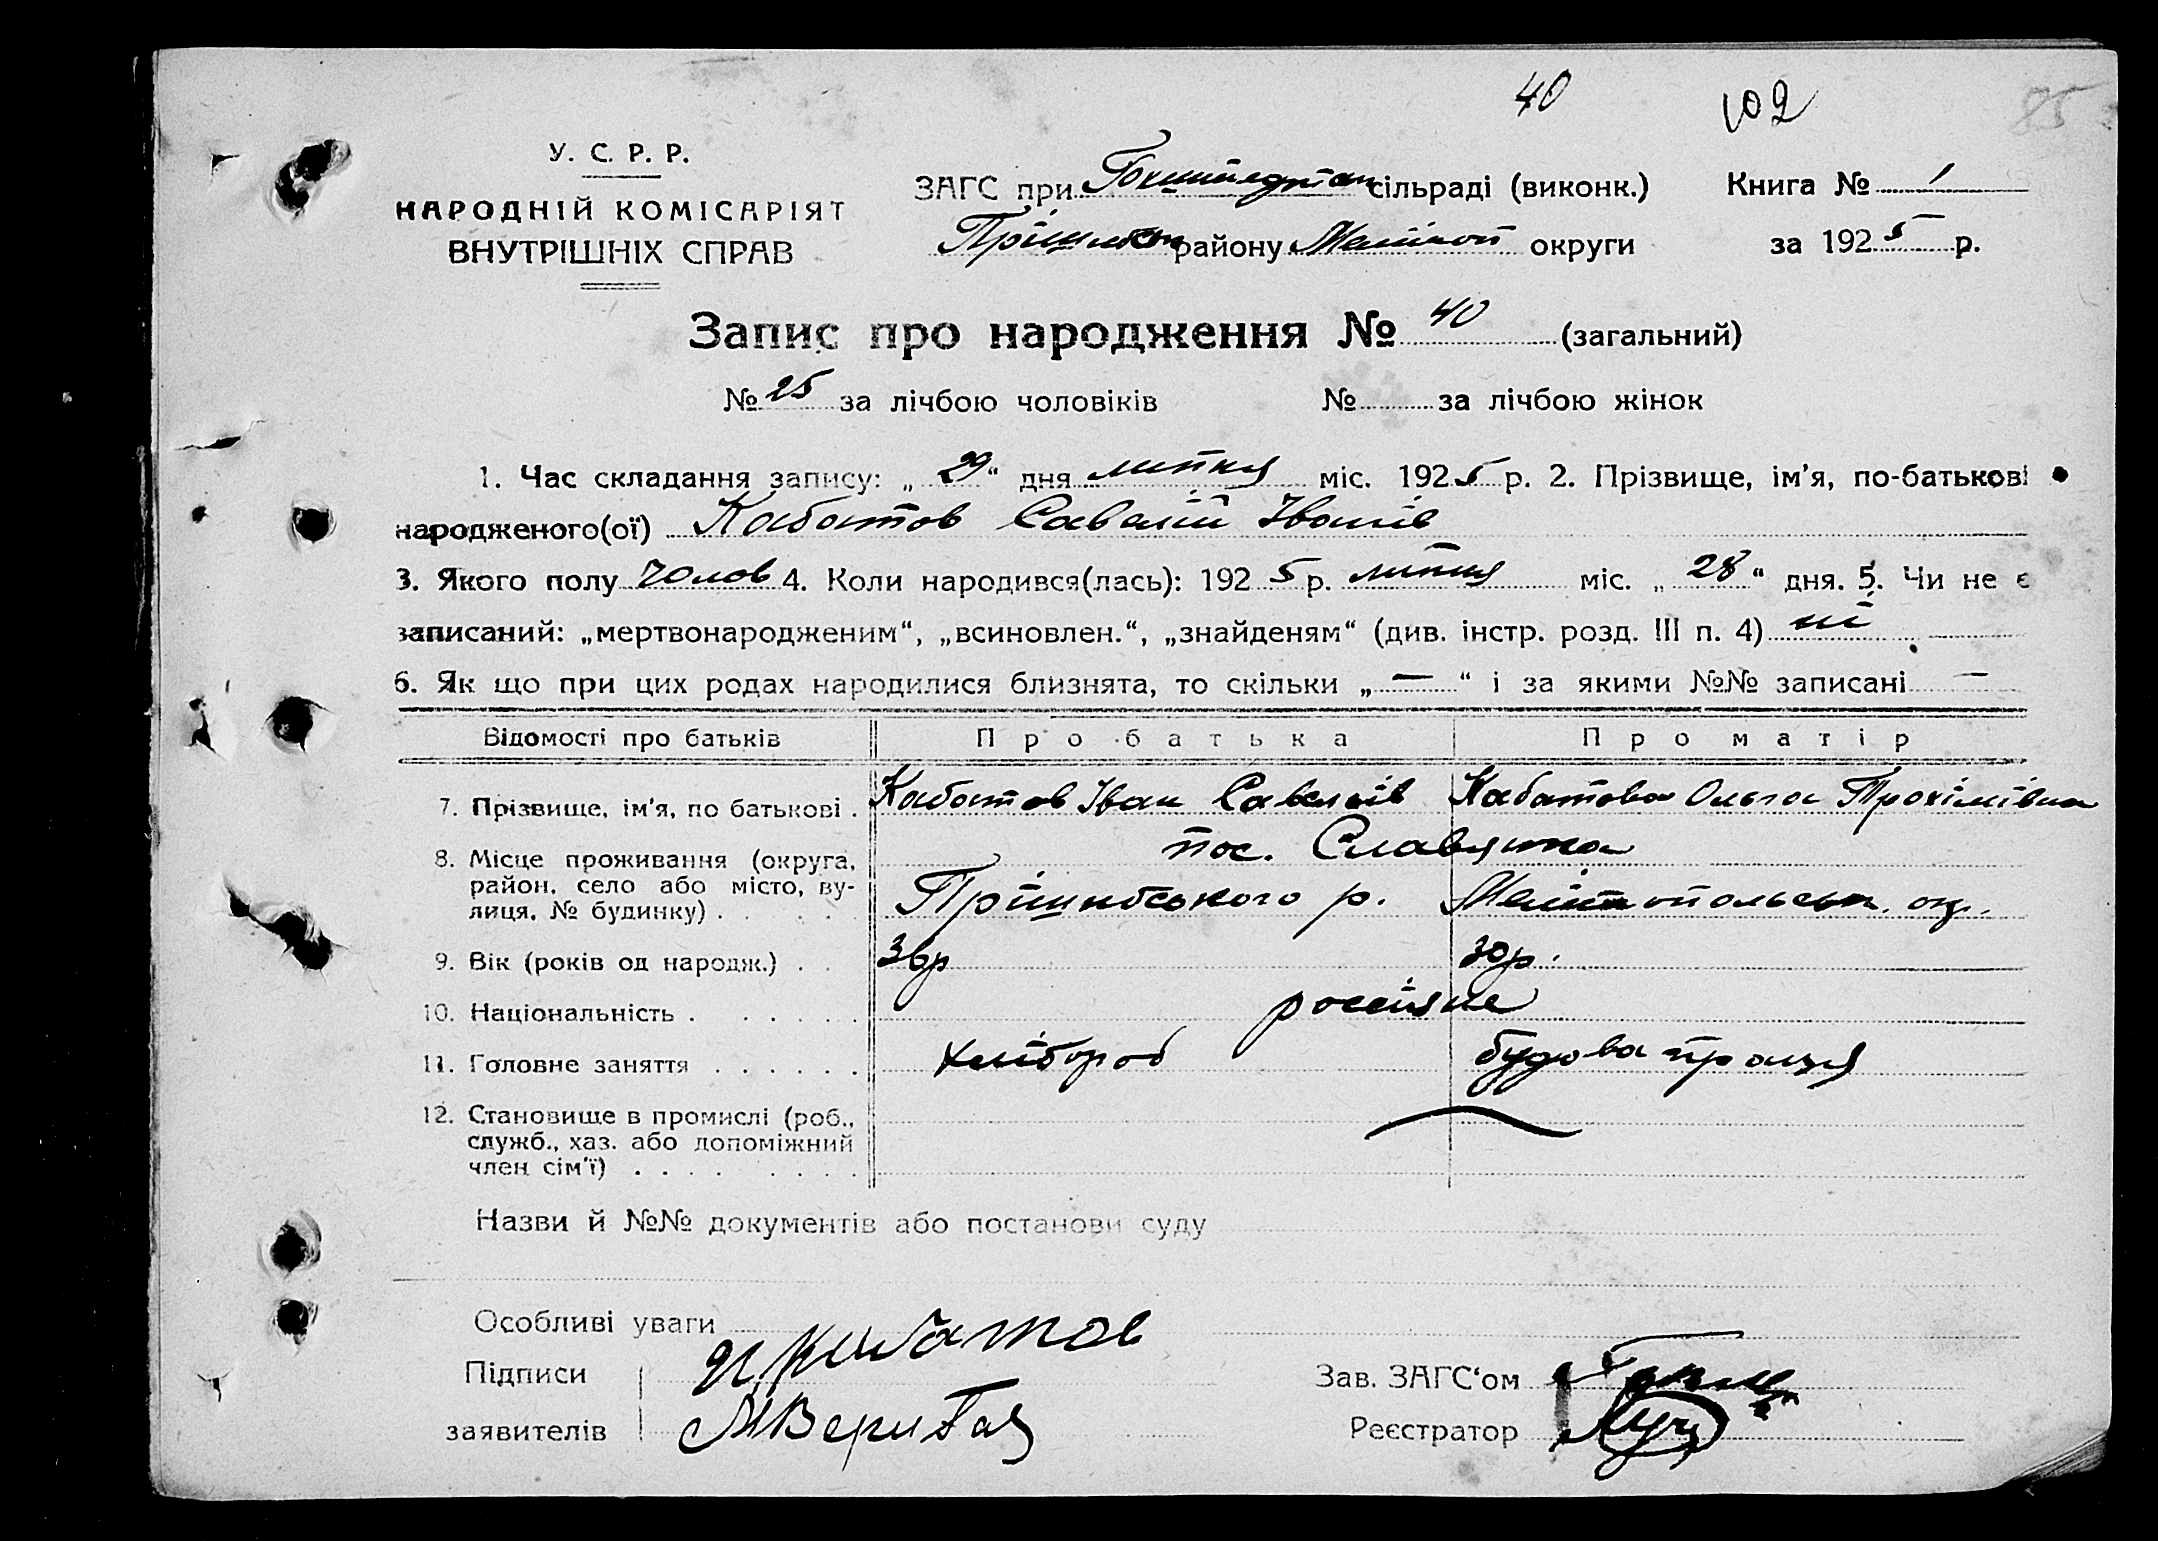 40 102 85
У. С. Р. Р.
НАРОДНІЙ КОМІСАРІЯТ
ВНУТРІШНІХ СПРАВ
ЗАГС при Гохштедтан сільраді (виконк.) Книга № 1
Пришибськ району Мелітоп округи за 1925 р.
Запис про народження № 40 (загальний)
№ 25 за лічбою чоловіків № за лічбою жінок
1. Час складання запису: „ 29 “ дня липня міс. 1925 р. 2. Прізвище, ім'я, по-батькові
народженого(ої) Кабатов Савелій Іванів
3. Якого полу Чолов 4. Коли народився(лась): 1925 р. липня міс. „ 28 “ дня. 5. Чи не є
записаний: „мертвонародженим“, „всиновлен.“, „знайденям“ (див. інстр. розд. III п. 4) ні
6. Як що при цих родах народилися близнята, то скільки „ — “ і за якими №№ записані —
Відомості про батьків Про батька Про матір
7. Прізвище, ім'я, по батькові . Кабатов Іван Савеліів Кабатова Ольга Прохімівна
8. Місце проживання (округа, район, село або місто, ву-
лиця, № будинку) . . . . пос. Славянка
Пришибського р. Мелітопольськ. окр.
9. Вік (років од народж.) . . 36р 30р.
10. Національність . . . . . . россіяне
11. Головне заняття . . . . . . хлібороб будова праця
12. Становище в промислі (роб.,
служб., хаз. або допоміжний
член сім'ї) . . . . . . . .
Назви й №№ документів або постанови суду
Особливі уваги
Підписи И Кабатов Зав. ЗАГС‘ом
заявителів Реєстратор